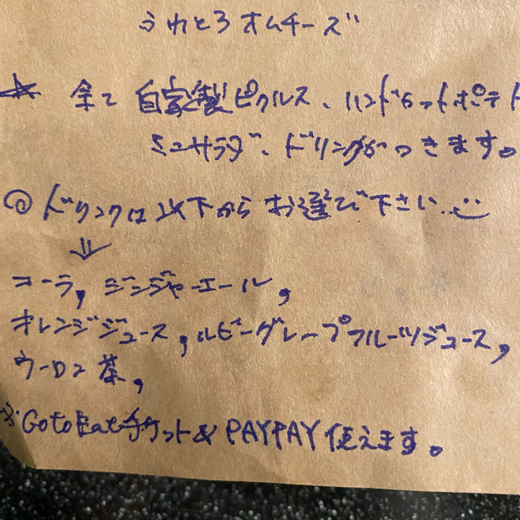 うれとろオムチーズ
☆ 全て 自家製ピクルス、ハンドカットポテト
ミニサラダ、ドリンクがつきます。
◎ドリンクは以下からお選び下さい
⇓
コーラ, ジンジャーエール,
オレンジジュース, ルビーグレープフルーツジュース,
ウーロン茶,
※Go to Eatチケット&PAYPAY使えます。